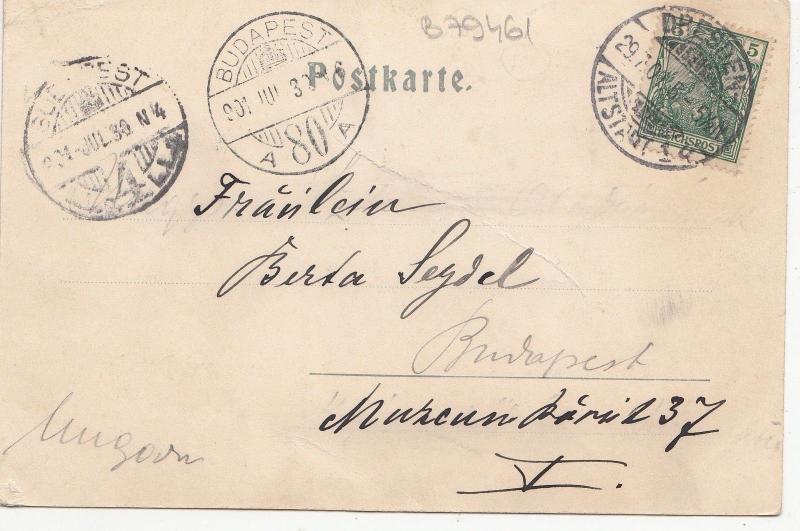 B79461
Postkarte.
BUDAPEST
901 JUL 30
A 80 A
BUDAPEST
901 JUL 30 N4
DRESDEN
29.7.01
ALTSTADT
5 5
REICHSPOST
Fräulein
Berta Seydel
Budapest
Muzeum körút 37
V.
Ungarn